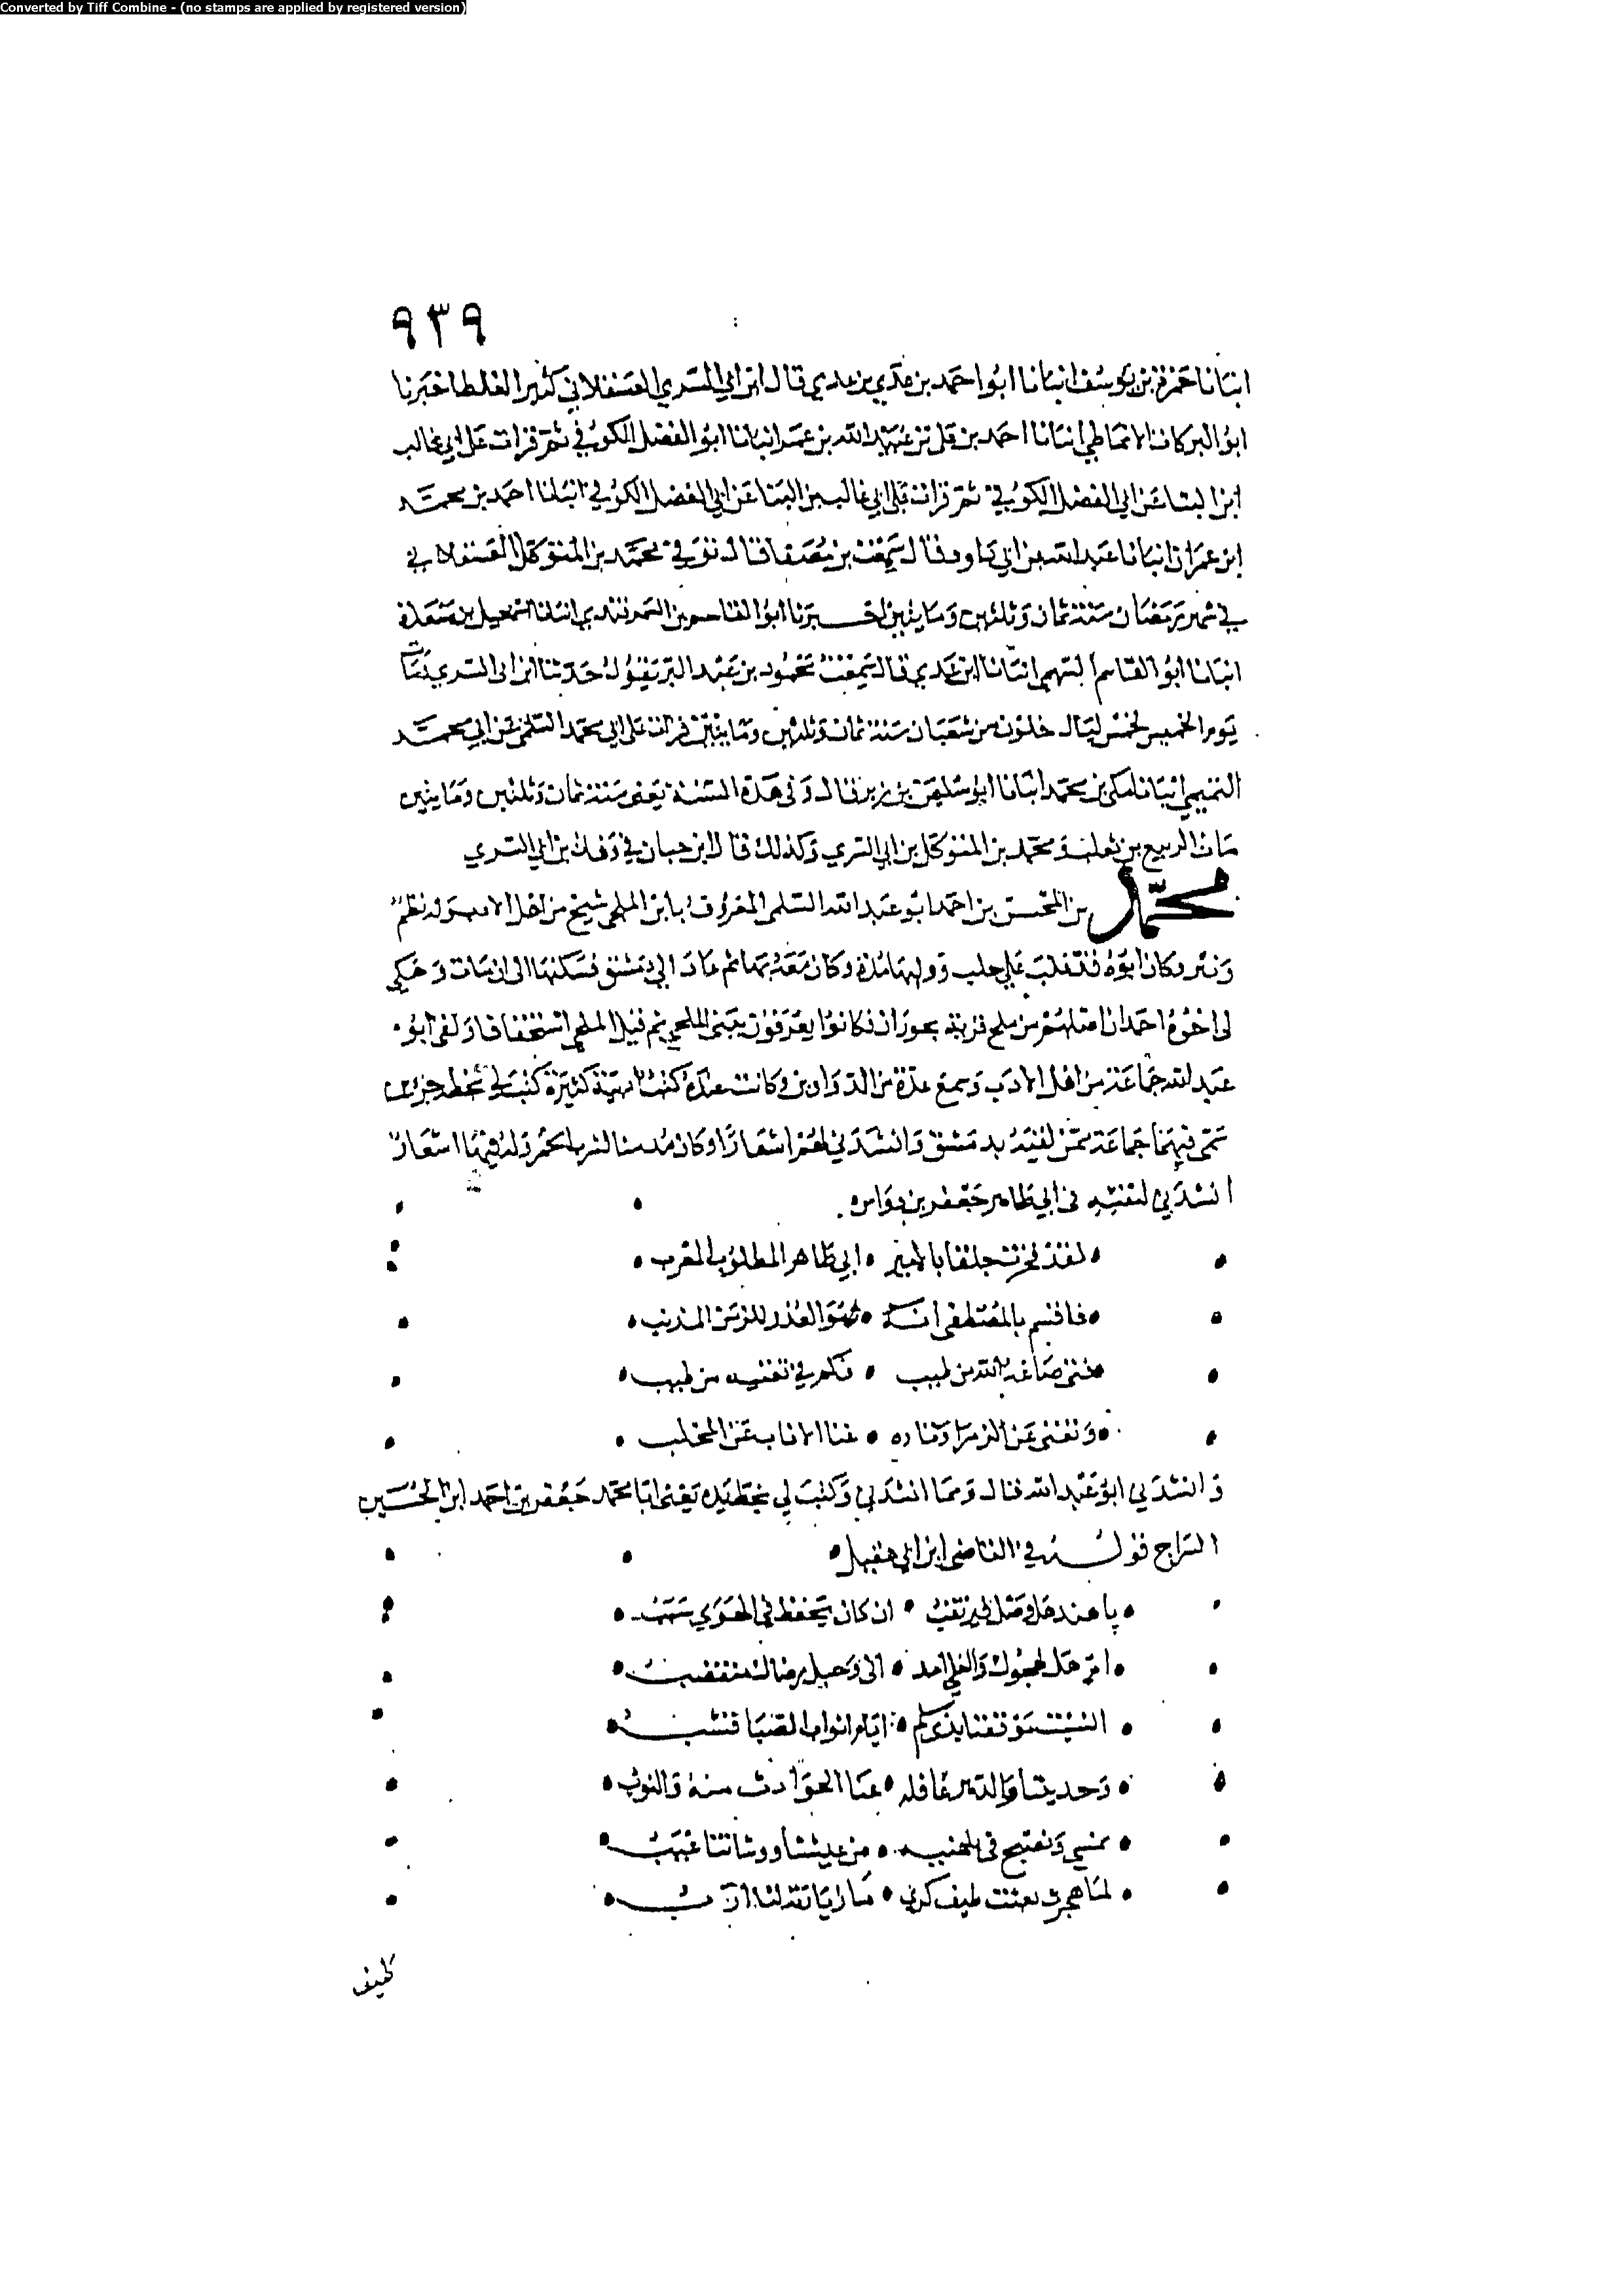 Converted by Tiff Combine - (no stamps are applied by registered version)
٩٣٩
انبانا حمزة بن يوسف انبانا ابو احمد بن عدي بن عدي قال ابن ابي السري العسقلاني كثير الغلط اخبرنا
ابو البركات الانماطي انبانا احمد بن عبيد الله بن عمر انبانا ابو الفضل الكوفي ثم قرات على ابي غالب
ابن البنا عن ابي الفضل الكوفي ثم قرات على ابي غالب بن البنا عن ابي الفضل الكوفي انبانا احمد بن محمد
ابن عمران انبانا عبد الله بن ابي داود قال سمعت بن مصفا قال توفي محمد بن المتوكل العسقلاني
في شهر رمضان سنة ثمان وثلثين ومايتين اخبرنا ابو القاسم بن السمرقندي انبانا اسمعيل بن مسعدة
انبانا ابو القاسم السهمي انبانا ابن عدي قال سمعت محمود بن عبد البر يقول حدثنا ابن ابي السري
يوم الخميس لخمس ليال خلون من شعبان سنة ثمان وثلثين ومايتين قرات على ابي محمد السلمي عن ابي محمد
التميمي انبانا مكي بن محمد انبانا ابو سليمن بن زبر قال وفي هذه السنة يعني سنة ثمان وثلثين ومايتين
مات الربيع بن ثعلب ومحمد بن المتوكل بن ابي السري وكذلك قال ابن حبان في وفاة بن ابي السري
محمد بن المحسن بن احمد ابو عبد الله السلمي المعروف بابن الملحي شيخ من اهل الادب وله نظم
ونثر وكان ابوه قد تغلب على حلب ووليها مدة وكان معه بها ثم عاد الى دمشق فسكنها الى ان مات وحكى
لي اخوه احمد ان اصلهم من ملح قرية بحوران فكانوا يعرفون ببني الملحي ثم قيل الملحي استخفافا ولقى ابو
عبد الله جماعة من اهل الادب وسمع عدة من الدواوين وكانت عنده كتب كثيرة كتب لي بخطه جزئين
سمى فيهما جماعة ممن لقيه بدمشق وانشدني لهم اشعارا وكان مدمنا لشرب الخمر وله فيها اشعار
انشدني لنفسه في ابي طاهر جعفر بن دواس
لقد فخرت جلق بالامير ابي طاهر المطلوب المغرب
فاقسم بالمصطفى انه هو العذر للزمن المذنب
فتى صاغه الله من طيب فكم في تقتيه من طيب
وتغنى عن الزمر اوتاره غنا الاناب عن المخلب
وانشدني ابو عبد الله قال ومما انشدني وكتب لي بخط يده يعني ابا محمد جعفر بن احمد ابن الحسين
السراج قوله في القاضي ابن ابي عقيل
يا هند هل وصل فيرتقب ان كان يحفظ في الهوى سبب
ام هل لهجرك والقلى امد اني وحبل رضاك منقضب
انسيت موقفنا بذي سلم ايام اثواب الصبا قشب
وحديثنا والدهر غافلة عنا الحوادث منه والنوب
نمسي ونصبح في بلهنية من عيشنا ووشاتنا غيب
لما هجرت بعثت طيف كرى ما رابنا فقد لنا ارب
طيف